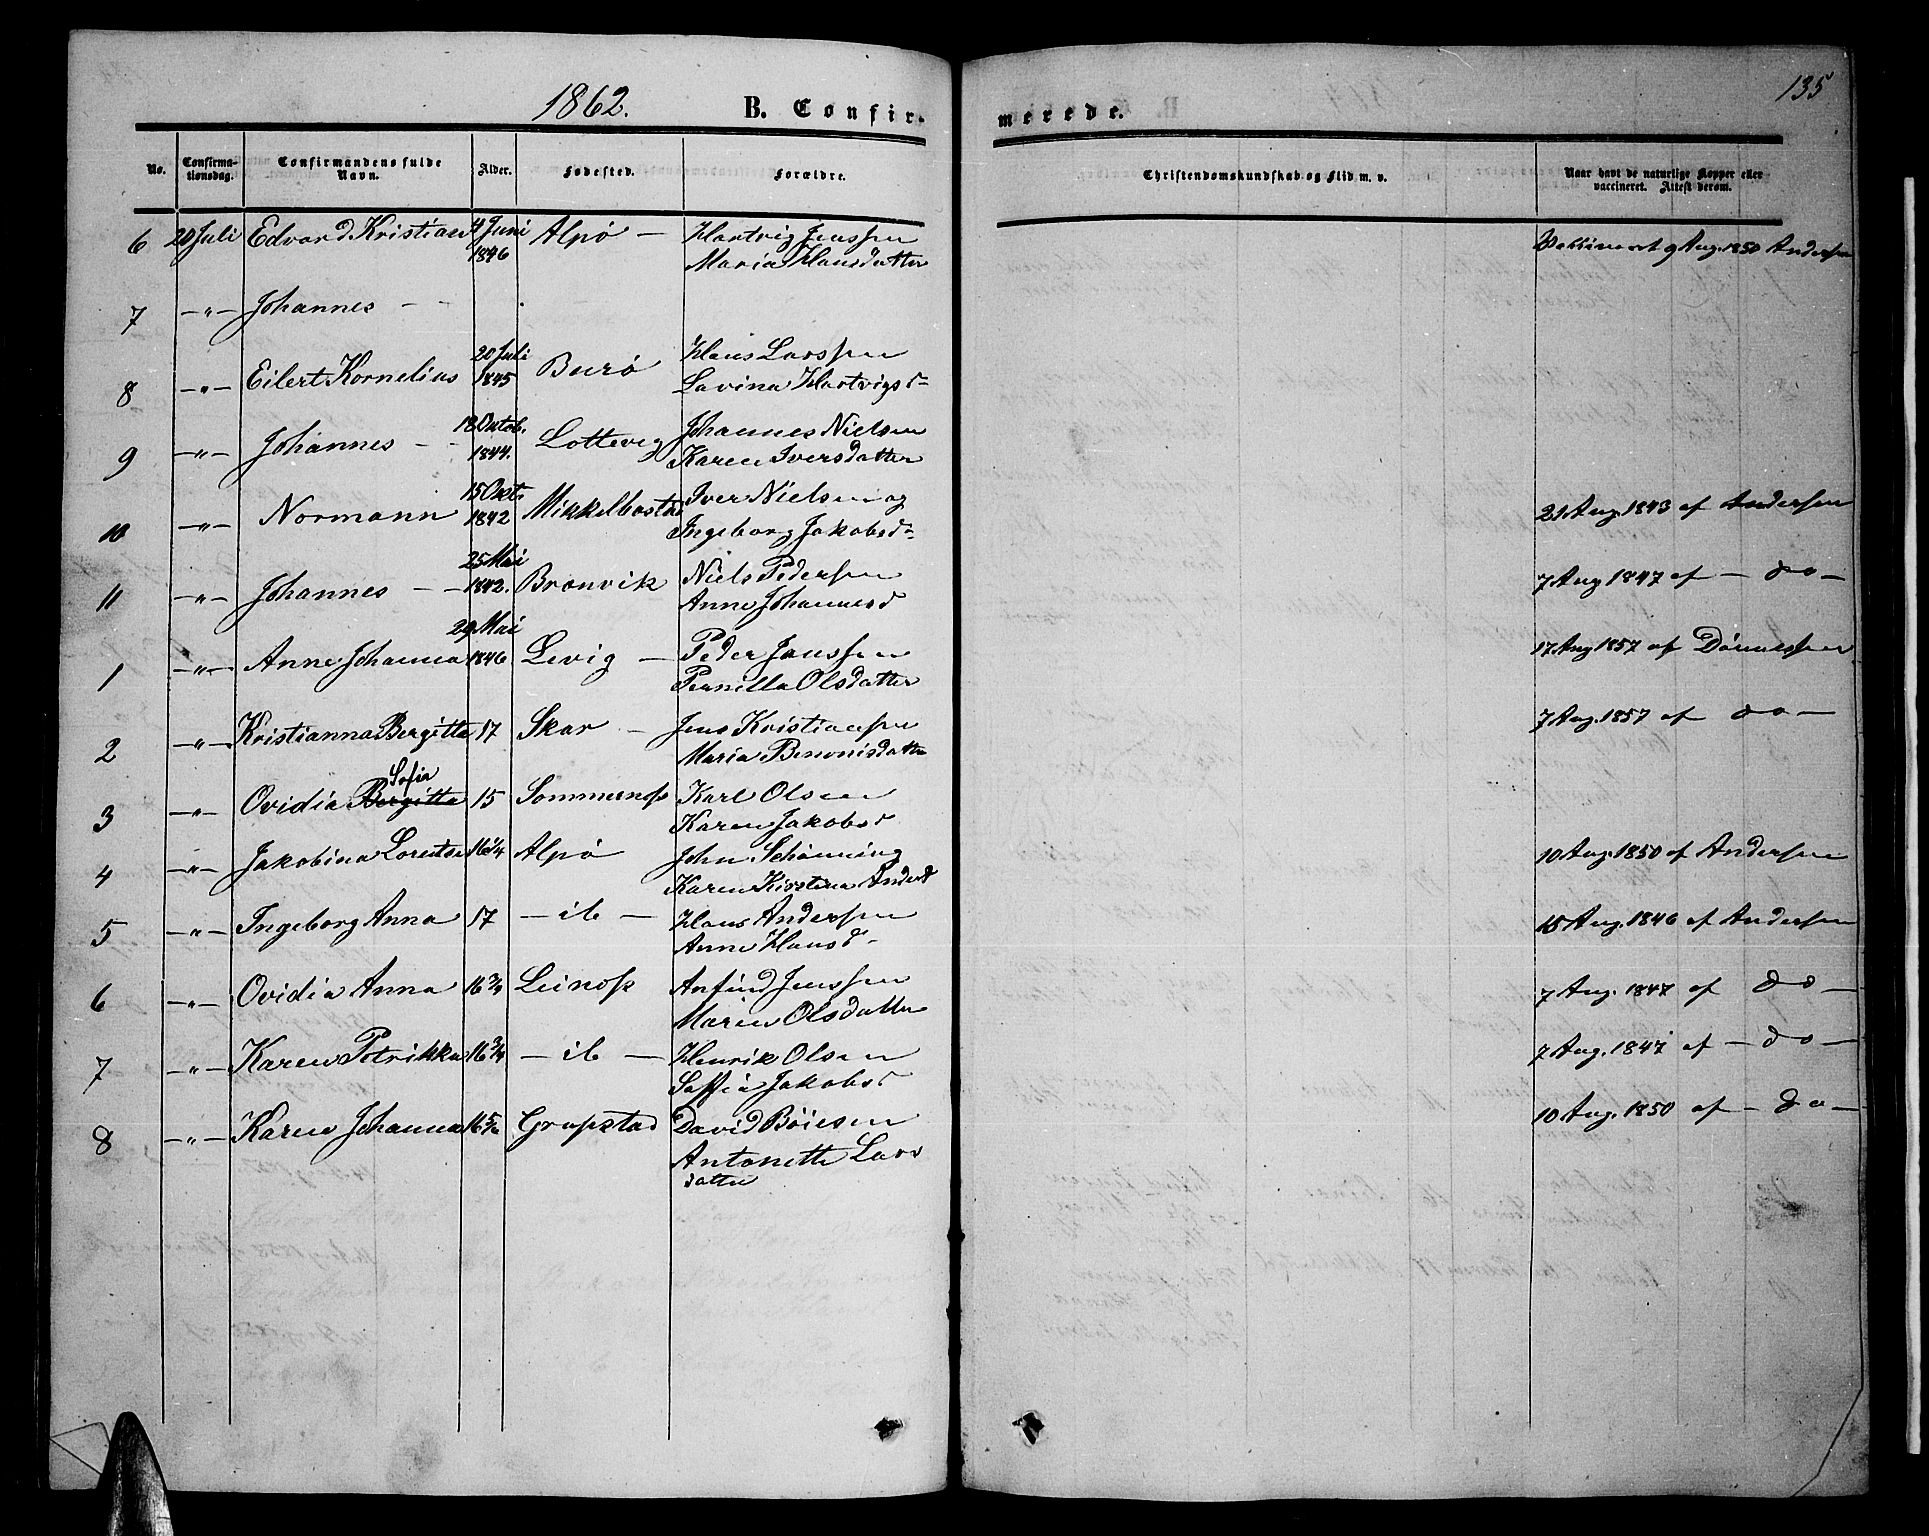 1862.
B. Confir-
merede.
135
No.
Confirma-
tionsdag.
Confirmandens fulde
Navn.
Alder.
Fødested.
Forældre.
Christendomskundskab og Flid m. v.
Naar havt de naturlige Kopper eller
vaccineret. Attest derom.
6 20 Juli Edvard Kristian 4 Juni 1846 Alpø — Hartvig Jenssen
Maria Hansdatter
Vakkineret 9 Aug. 1850 Andersen
7 —"— Johannes — —
8 —"— Eilert Kornelius 20 Juli 1845 Burø Hans Larssen
Lavina Hartvigsd—
9 —"— Johannes — — 18 Oktob. 1844. Lottevig Johannes Nielsen
Karen Iversdatter
10 —"— Normann 15 Okt. 1842 Mikkelbostad Iver Nielsen og
Ingeborg Jakobsd—
21 Aug. 1843 af Andersen
11 —"— Johannes — — 25 Mai 1842. Bronvik Niels Pedersen
Anne Johannesd
7 Aug 1847 af — do —
1 —"— Anne Johanna 29 Mai 1846 Levig — Peder Janssen
Pernella Olsdatter
17 Aug 1857 af Dønnessen
2 —"— Kristianna Bergitta 17 Skar — Jens Kristiansen
Maria Benonisdatter
7 Aug. 1857 af do —
Sofia
3 —"— Ovidia Bergitta 15 Sommernes Karl Olsen
Karen Jakobsd
4 —"— Jakobina Lorentse 16 1/4 Alpø John Schønning
Karen Kirstina Andersd
10 Aug. 1850 af Andersen
5 —"— Ingeborg Anna 17 — ib — Hans Andersen
Anne Hansd—
15 Aug. 1846 af Andersen
6 —"— Ovidia Anna 16 3/4 Leines Anfind Jenssen
Maren Olsdatter
7 Aug. 1847 af do —
7 —"— Karen Petrikka 16 3/4 — ib — Henrik Olsen
Soffia Jakobsd
7 Aug. 1847 af — do —
8 —"— Karen Johanna 16 5/6 Grapstad David Bøiesen
Antonette Lars
datter
10 Aug. 1850 af — do —